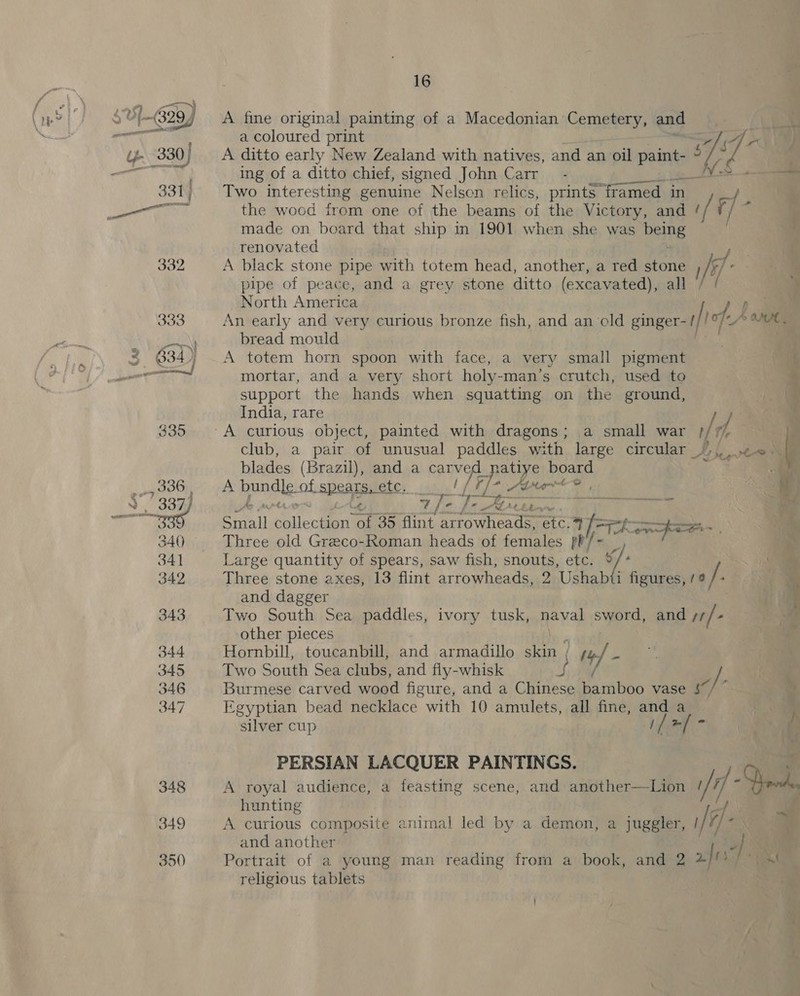 16
329 A fine original painting of a Macedonian Cemetery, and
a coloured print
330 A ditto early New Zealand with natives, and an oil paint-
ing of a ditto chief, signed John Carr -
331 Two interesting genuine Nelson relics, prints framed in
the wood from one of the beams of the Victory, and
made on board that ship in 1901 when she was being
renovated
332 A black stone pipe with totem head, another, a red stone
pipe of peace, and a grey stone ditto (excavated), all
North America
333 An early and very curious bronze fish, and an old ginger-
bread mould
334 A totem horn spoon with face, a very small pigment
mortar, and a very short holy-man's crutch, used to
support the hands when squatting on the ground,
India, rare
335 A curious object, painted with dragons; a small war
club, a pair of unusual paddles with large circular
blades (Brazil), and a carved native board
336 A bundle of spears, etc.
337
339 Small collection of 35 flint arrowheads, etc.
340 Three old Græco-Roman heads of females
341 Large quantity of spears, saw fish, snouts, etc.
342 Three stone axes, 13 flint arrowheads, 2 Ushabti figures,
and dagger
343 Two South Sea paddles, ivory tusk, naval sword, and
other pieces
344 Hornbill, toucanbill, and armadillo skin
345 Two South Sea clubs, and fly-whisk
346 Burmese carved wood figure, and a Chinese bamboo vase
347 Egyptian bead necklace with 10 amulets, all fine, and a
silver cup
PERSIAN LACQUER PAINTINGS.
348 A royal audience, a feasting scene, and another—Lion
hunting
349 A curious composite animal led by a demon, a juggler,
and another
350 Portrait of a young man reading from a book, and 2
religious tablets